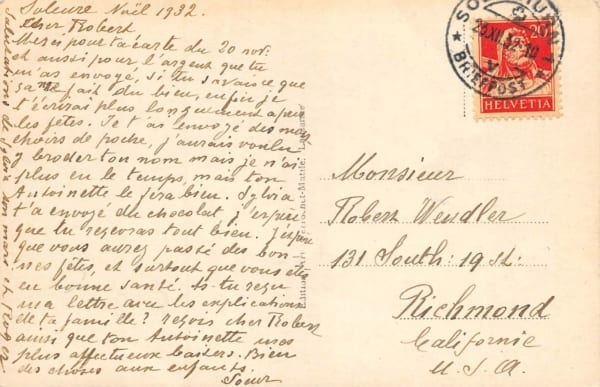 Soleure Noël 1932.
Cher Robert
Merci pour ta carte du 20 nov.
et aussi pour l'argent que tu
m'as envoyé, si tu savais ce que
ça m'a fait du bien, enfin je
t'écrirai plus longuement après
les fêtes. Je t'ai envoyé des mou-
choirs de poche, j'aurais voulu
y broder ton nom mais je n'ai
plus eu le temps, mais ton
Antoinette le fera bien. Sylvia
t'a envoyé du chocolat, j'espère
que tu recevras tout bien. J'espère
que vous aurez passé des bon-
nes fêtes, et surtout que vous êtes
en bonne santé. As-tu reçu
ma lettre avec les explications
de ta famille? reçois cher Robert
ainsi que ton Antoinette mes
plus affectueux baisers. Bien
des choses aux enfants.
Soeur
Salutations de Sylvia son mari et
SOLOTHURN 1
23.XII.32-10
BRIEFPOST
20
HELVETIA
Lausanne
Monsieur
Robert Wendler
131 South: 19 st.
Richmond
Californie
U.S.A.